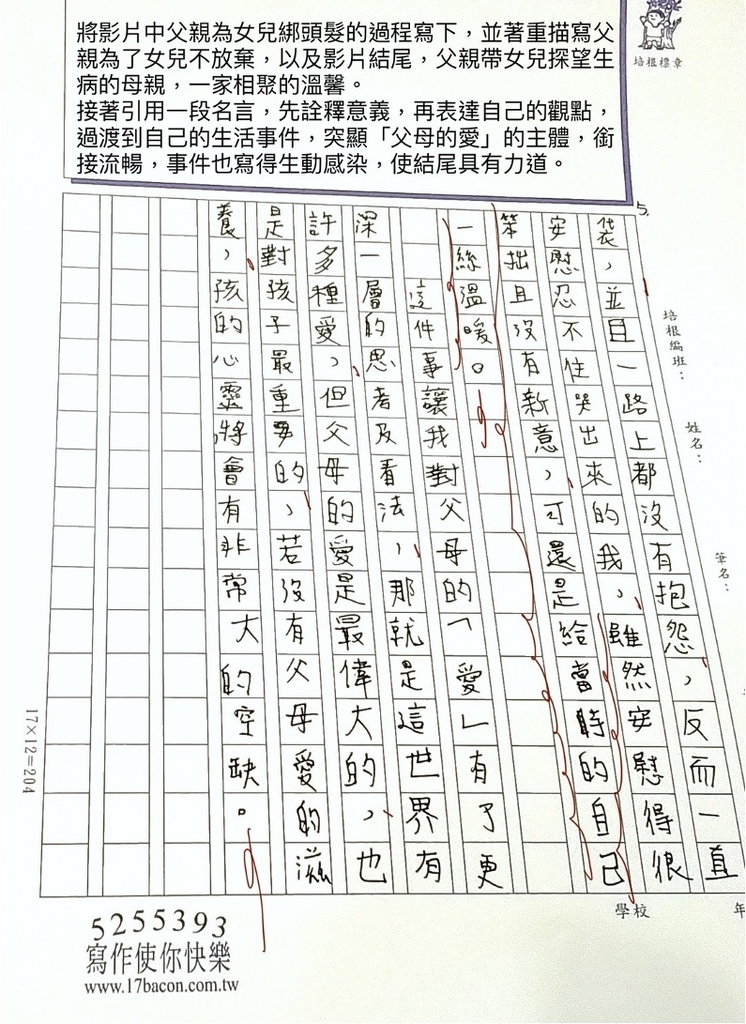 將影片中父親為女兒綁頭髮的過程寫下，並著重描寫父
親為了女兒不放棄，以及影片結尾，父親帶女兒探望生
病的母親，一家相聚的溫馨。
接著引用一段名言，先詮釋意義，再表達自己的觀點，
過渡到自己的生活事件，突顯「父母的愛」的主體，銜
接流暢，事件也寫得生動感染，使結尾具有力道。
培根標章
5.
培根編班：
姓名：
筆名：
袋，並且一路上都沒有抱怨，反而一直
安慰忍不住哭出來的我，雖然安慰得很
笨拙且沒有新意，可還是給當時的自己
一絲溫暖。
這件事讓我對父母的「愛」有了更
深一層的思考及看法，那就是這世界有
許多種愛，但父母的愛是最偉大的，也
是對孩子最重要的，若沒有父母愛的滋
養，孩的心靈將會有非常大的空缺。
17×12=204
學校
年
5255393
寫作使你快樂
www.17bacon.com.tw